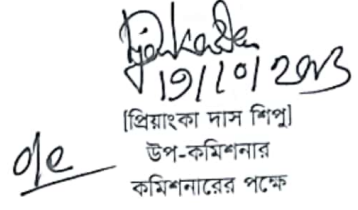 19/10/2023
[প্রিয়াংকা দাস শিপু]
উপ-কমিশনার
কমিশনারের পক্ষে